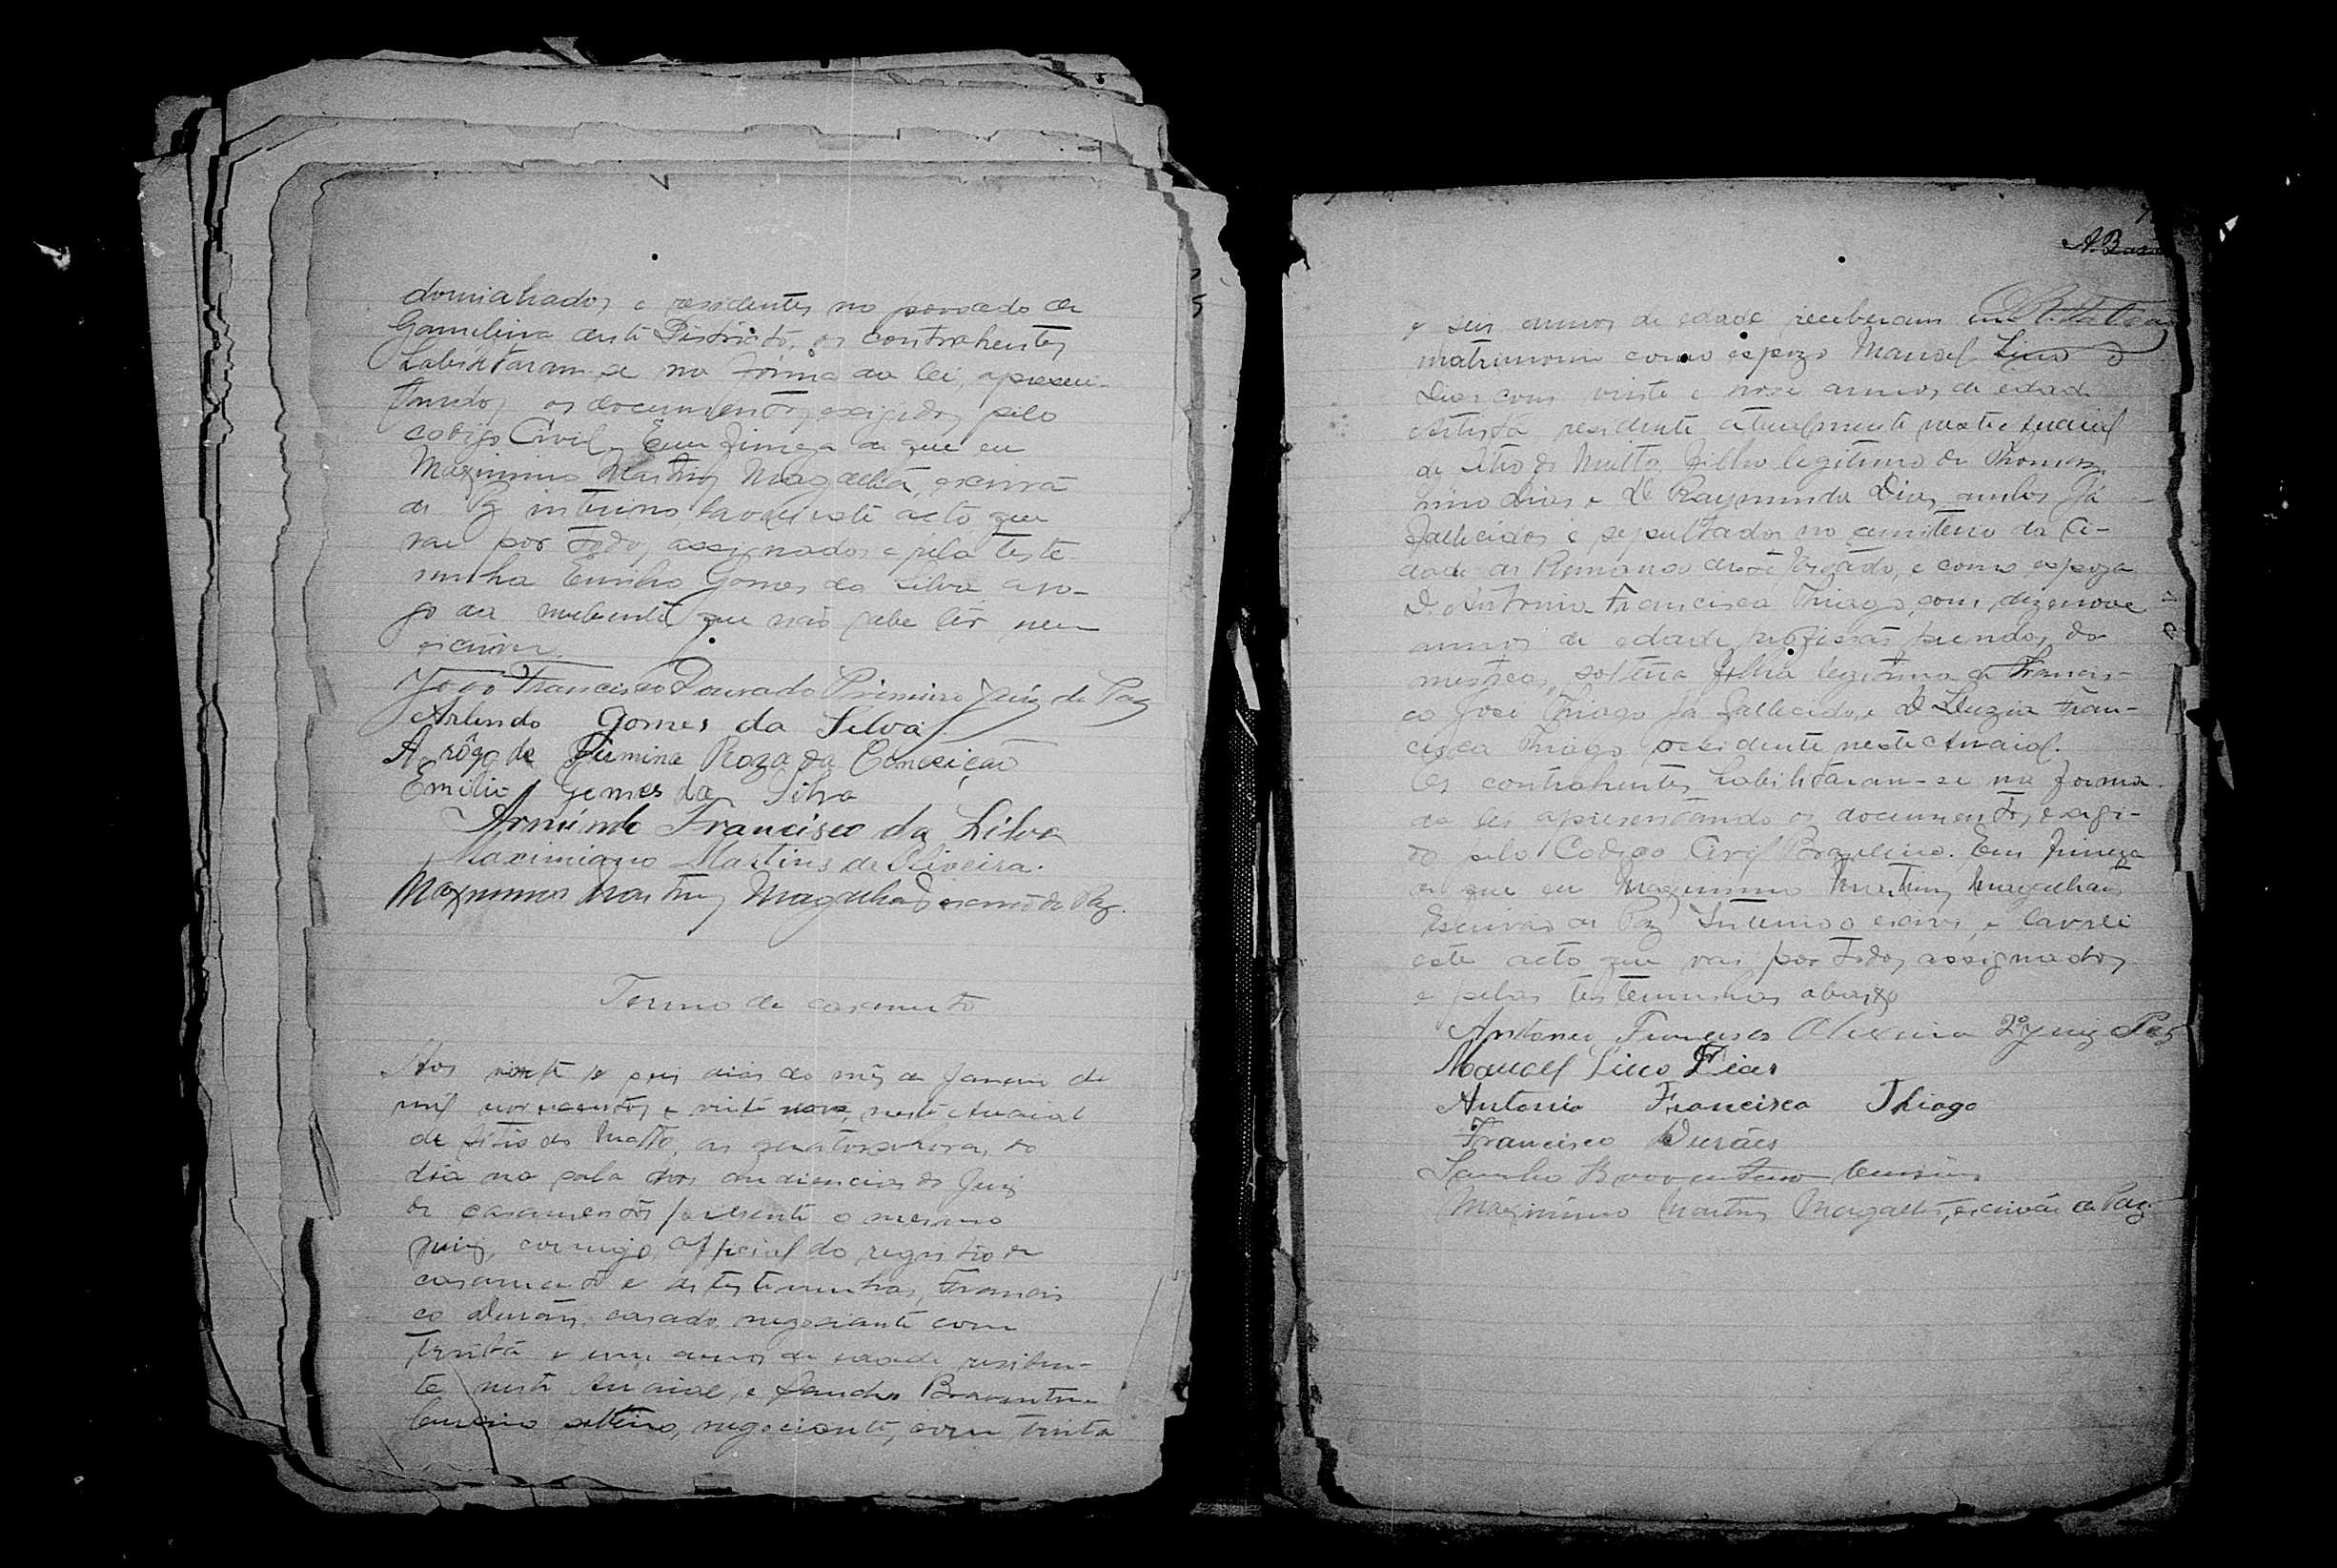 domiciliados e residentes no povoado de
Gamelleira deste Districto, os contrahentes
habilitaram-se na fórma da lei, apresen-
tando os documentos exigidos pelo
codigo Civil. Em firmeza do que eu
Maximino Martins Magalhã, escrivã
de Paz interino lavrei este acto que
vae por todos assignados e pela teste-
munha Emilio Gomes da Silva a ro-
go da nubente que não sabe lêr nem
escrever.
João Francisco Dourado Primeiro Juiz de Paz
Arlindo Gomes da Silva
A rôgo de Firmina Roza da Conceição
Emilio Gomes da Silva
Armindo Francisco da Silva
Maximiano Martins de Oliveira.
Maximino Martins Magalhães escrivão de Paz.
Termo de casamento
Aos vinte e seis dias do mês de Janeiro de
mil novecentos e vinte nove, neste Arraial
de Sitio do Matto, as quatorse horas, do
dia na sala das audiencias do Juiz
de casamentos presente o mesmo
juiz, comigo official do registro de
casamento e as testemunhas, Francis
co Durães, casado, negociante com
trinta e um annos de edade, residen-
te neste Arraial, e Sancho Boaventura
solteiro, negociante, com trinta
A.
e seis annos de edade receberam em
matrimonio como espozo Manoel Lino
Dias com vinte e nove annos de edade
Artista residente atualmente neste Arraial
de Sitio do Matto, filho legitimo de Thomaz
Lino Dias e D. Raymunda Dias, ambos já
fallecidos e sepultados no cemiterio da Ci-
dade de Remanso deste Estado, e como espoza
D. Antonia Francisca Thiago, com dezenove
annos de edade, profissão prendas do
mesticas, solteira filha legitima de Francis-
co José Thiago já fallecido, e D. Luzia Fran-
cisca Thiago residente neste Arraial.
Os contrahentes habilitaram-se na forma
da lei apresentando os documentos exigi-
do pelo Codigo Civil Brazileiro. Em firmeza
do que eu Maximino Martins Magalhães
Escrivão de Paz Interino o escrivi, e lavrei
este acto que vai por todos assignados
e pelas testemunhas abaixo
Antonio Francisco Oliveira 2º Juiz Paz
Manoel Lino Dias
Antonia Francisca Thiago
Francisco Durães
Sancho Boaventura
Maximino Martins Magalhãs, escrivão de Paz